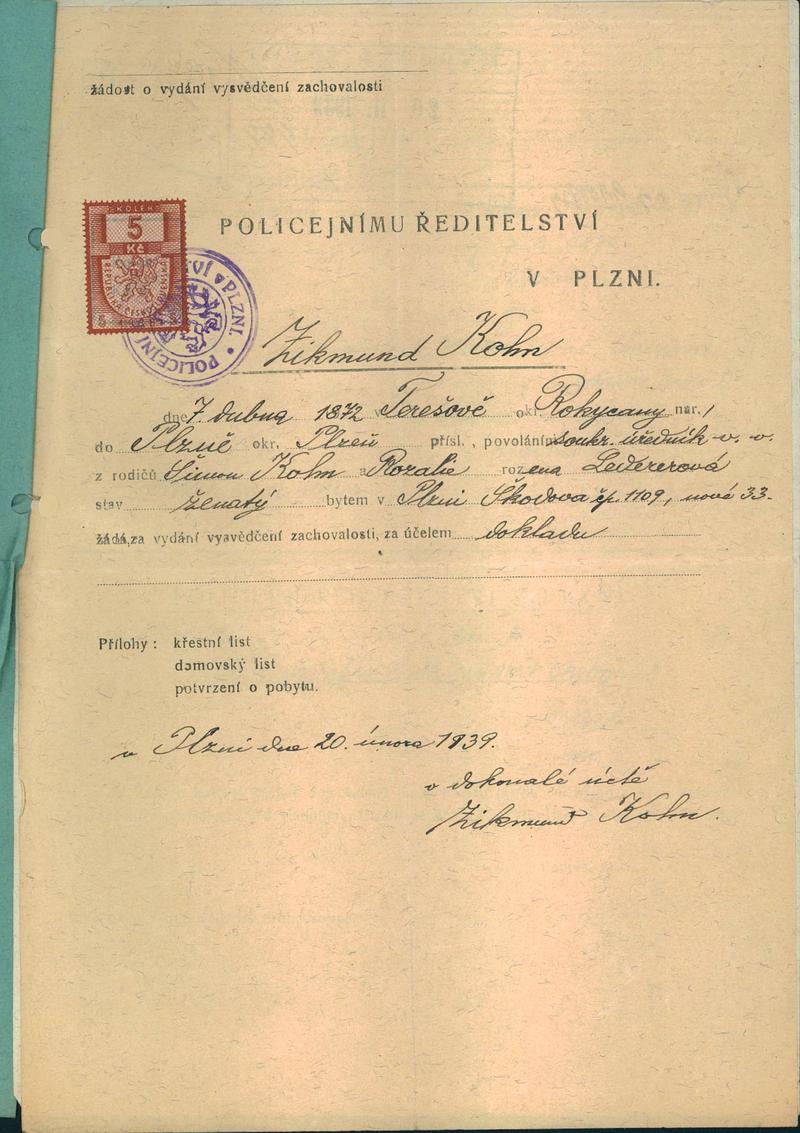 žádost o vydání vysvědčení zachovalosti
KOLEK
5
Kč
POLICEJNÍMU ŘEDITELSTVÍ
V PLZNI.
POLICEJNÍ V PLZNI.
Zikmund Kohn
dne 7. dubna 1872 v Terešově okr. Rokycany nar.,
do Plzně okr. Plzeň přísl., povolání soukr. úředník v. v.
z rodičů Šimon Kohn a Rozalie rozena Ledererová
stav ženatý bytem v Plzni Škodova čp. 1109, nové 33.
žádá, za vydání vysvědčení zachovalosti, za účelem dokladu
Přílohy : křestní list
domovský list
potvrzení o pobytu.
v Plzni dne 20. února 1939.
v dokonalé úctě
Zikmund Kohn.